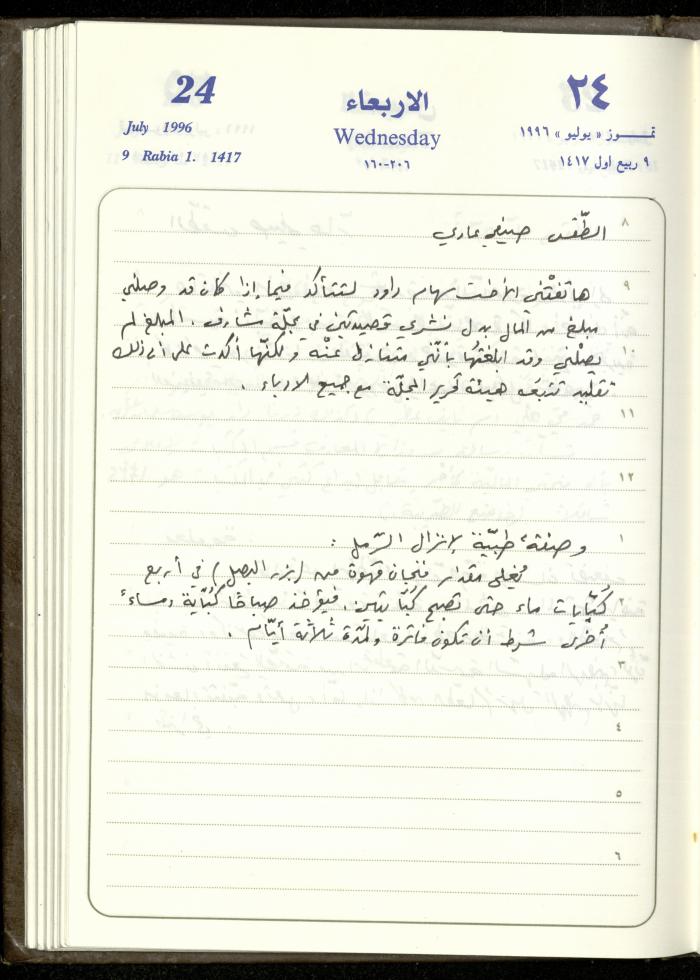 24
الاربعاء
٢٤
July 1996
Wednesday
تمـــوز « يوليو » ١٩٩٦
9 Rabia 1. 1417
٢٠٦-١٦٠
٩ ربيع اول ١٤١٧
٨
الطّقس صيفي عادي
٩
هاتفتْني الأخت سهام داود لتتأكد فيما إذا كان قد وصلني
مبلغ من المال بدل نشري قصيدتين في مجلّة مشارف. المبلغ لم
١٠
يصلْني وقد ابلغتُها بأنّني متنازل عنْه ولكنّها أكدت على أن ذلك
تقليد تتبَعه هيئة تحرير المجلّة مع جميع الادباء.
١١
١٢
١
وصفة طبيّة لإنزال الرّمل:
يُغلى مقدار فنجان قهوة من (بزر البصل) في أربع
٢
كُبّايات ماء حتى تصبح كُبّايتين. فيؤخذ صباحًا كُبّاية ومساءً
أُخرى شرط أن تكون فاترة ولمدّة ثلاثة أيّام.
٣
٤
٥
٦